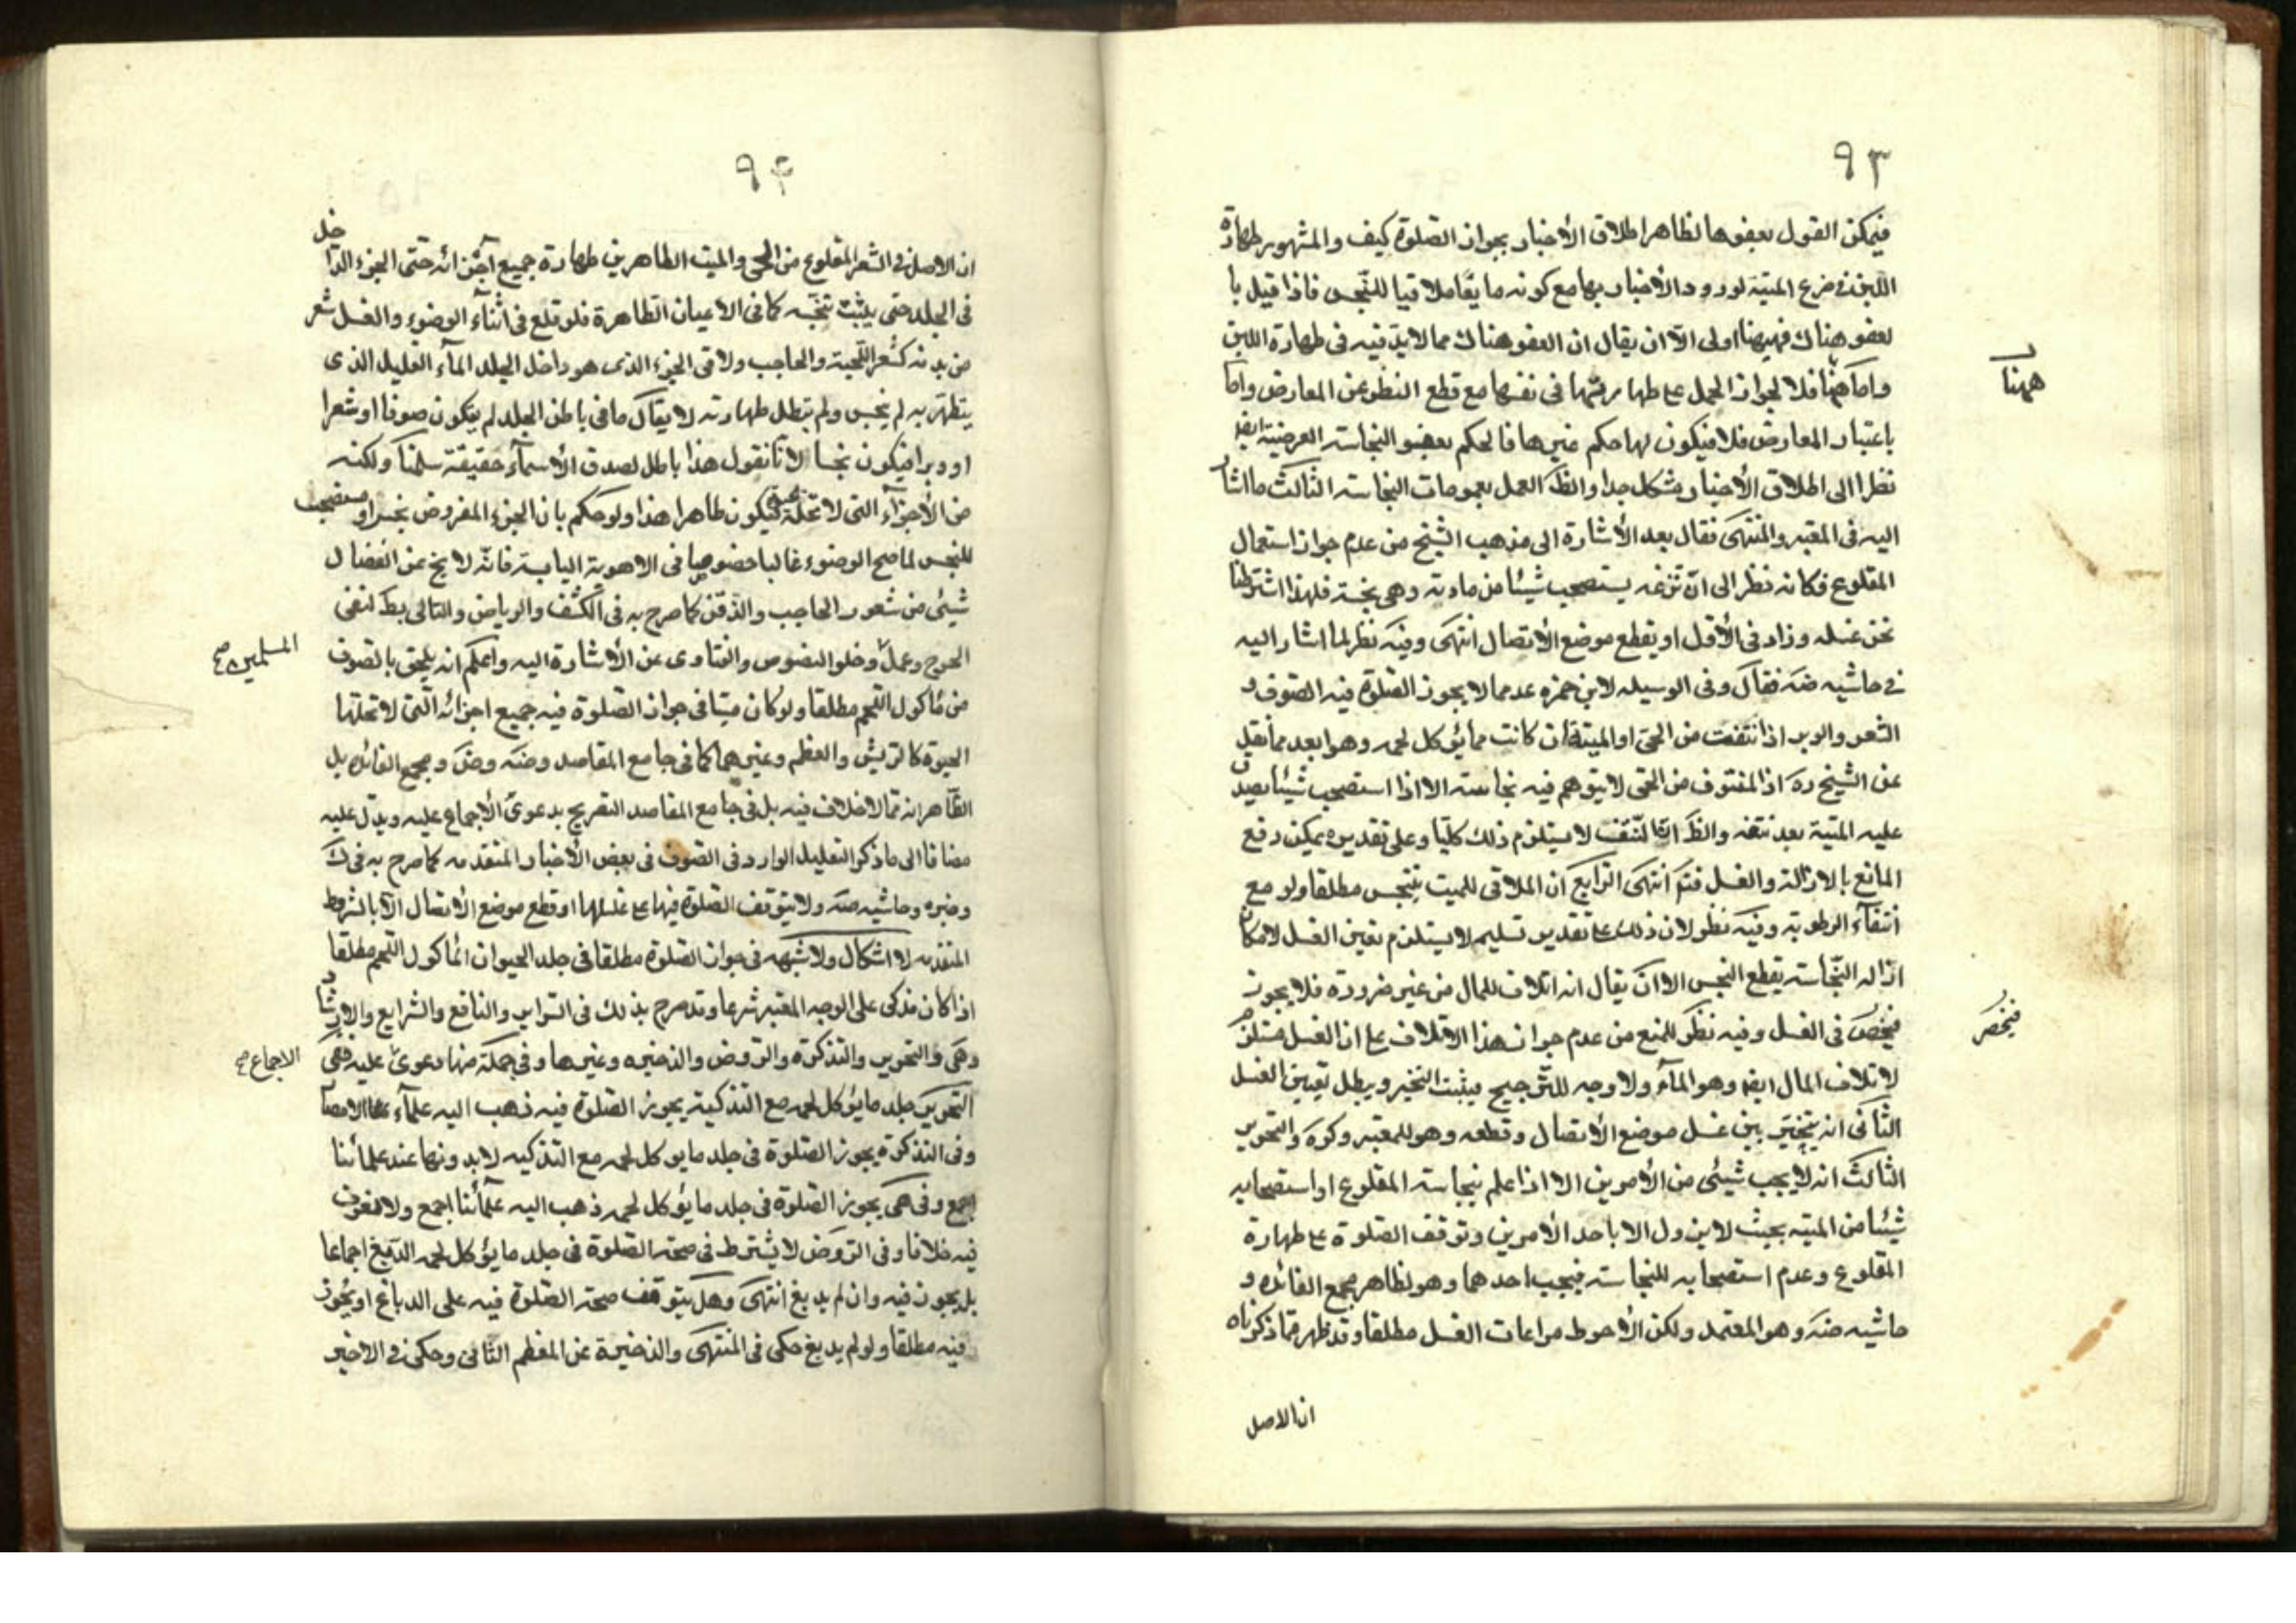 ٩٣
فيمكن القول بعفوها لظاهر اطلاق الأخبار بجواز الصلوة كيف والمشهور طهارة
اللبن فى ضرع الميتة لورود الأخبار بها مع كونه مايعا ملاقيا للنجس فاذا قيل با
لعفو هناك فههنا اولى الّا ان يقال ان العفو هناك مما لابد فيه فى طهارة اللبن
ههنا
واما هنا فلا لجواز الحمل على طهارتها فى نفسها مع قطع النظر عن المعارض واما
باعتبار المعارض فلا فيكون لها حكم غيرها فالحكم بعفو النجاسة العرضية ايضا
نظرا الى اطلاق الأخبار مشكل جدا والظ العمل بعمومات النجاسة الثالث ما اشار
اليه فى المعتبر والمنتهى فقال بعد الأشارة الى مذهب الشيخ من عدم جواز استعمال
المقلوع فكانه نظر الى ان نزعه يستصحب شيئا من مادته وهى نجسة فلهذا اشترطنا
نحن غسله وزاد فى الأول او يقطع موضع الأتصال انتهى وفيه نظر لما اشار اليه
فى حاشيه ضه فقال وفى الوسيله لابن حمزه عد مما لا يجوز الصلوة فيه الصوف و
الشعر والوبر اذا نتفت من الحى او الميتة ان كانت مما يؤكل لحمه وهو ابعد مما نقل
عن الشيخ ره اذ المنتوف من الحى لا يتوهم فيه نجاسته الا اذا استصحب شيئا يصدق
عليه الميتة بعد نتفه والظ ان النتف لا يستلزم ذلك كليا وعلى تقديره يمكن رفع
المانع بالازالة والغسل فتم انتهى الرابع ان الملاقى للميت ينجس مطلقا ولو مع
انتفآء الرطوبة وفيه نظر لان ذلك على تقدير تسليمه لا يستلزم تعين الغسل لامكان
ازاله النجاسته بقطع النجس الا ان يقال انه اتلاف للمال من غير ضرورة فلا يجوز
فينحصر
فينحصر فى الغسل وفيه نظر للمنع من عدم جواز هذا الاتلاف على ان الغسل مستلزم
لاتلاف المال ايضا وهو المآء ولا وجه للترجيح فيثبت التخير ويبطل تعيين الغسل
الثانى انه يتخير بين غسل موضع الأتصال وقطعه وهو للمعتبر وكره والتحرير
الثالث انه لا يجب شيئى من الأمرين الا اذا علم بنجاسته المقلوع او استصحابه
شيئا من الميته بحيث لا يزول الا باحد الأمرين وتوقف الصلوة على طهارة
المقلوع وعدم استصحابه للنجاسته فيجب احدهما وهو لظاهر مجمع الفائده و
حاشيه ضه وهو المعتمد ولكن الأحوط مراعات الغسل مطلقا وقد ظهر مما ذكرناه
ان الاصل
٩۴
ان الاصل فى الشعر المقلوع من الحى والميت الطاهرين طهارة جميع اجزائه حتى الجزء الداخل
فى الجلد حتى يثبت تنجسه كما فى الاعيان الطاهرة فلو قلع فى اثناء الوضوء والغسل شعر
من بدنه كشعر اللحية والحاجب ولاقى الجزء الذى هو داخل الجلد المآء القليل الذى
يتطهر به لم ينجس ولم تبطل طهارته لا يقال ما فى باطن الجلد لم يتكون صوفا او شعرا
او وبرا فيكون نجسا لانا نقول هذا باطل لصدق الأسمآء حقيقة سلمنا ولكنه
من الأجزآء التى لا تحله الحيوة فيكون طاهرا هذا ولو حكم بان الجزء المفروض نجس او مستصحب
للنجس لما صح الوضوء غالبا خصوصا فى الاهوية اليابسة فانه لا يخ عن انفصال
شيئى من شعور الحاجب والذقن كما صرح به فى الكشف والرياض والتالى بط لنفى
المسلمين صح
الحرج وعمل وخلو النصوص والفتاوى عن الأشارة اليه واعلم انه يلحق بالصوف
من ماكول اللحم مطلقا ولو كان ميتا فى جواز الصلوة فيه جميع اجزائه التى لا تحلها
الحيوة كالريش والعظم وغيرهما كما فى جامع المقاصد وضه وض ومجمع الفائده بل
الظاهر انه مما لا خلاف فيه بل فى جامع المقاصد التصريح بدعوى الأجماع عليه ويدل عليه
مضافا الى ما ذكر التعليل الوارد فى الصوف فى بعض الأخبار المتقدمه كما صرح به فى ك
وخيره وحاشيه ضه ولا يتوقف الصلوة فيها على غسلها او قطع موضع الأتصال الا بالشرط
المتقدمه لا اشكال ولا شبهه فى جواز الصلوة مطلقا فى جلد الحيوان المأكول اللحم مطلقا
اذا كان مذكى على الوجه المعتبر شرعا وقد صرح بذلك فى السراير والنافع والشرايع والارشاد
الاجماع صح
وهى والتحرير والتذكرة والروض والذخيره وغيرها وفى جملة منها دعوى عليه ففى
التحرير جلد ما يؤكل لحمه مع التذكية يجوز الصلوة فيه ذهب اليه علمآء الامصار
وفى التذكرة يجوز الصلوة فى جلد ما يوكل لحمه مع التذكيه لا بدونها عند علمائنا
اجمع وفى هى يجوز الصلوة فى جلد ما يؤكل لحمه ذهب اليه علمآئنا اجمع ولا نعرف
فيه خلافا وفى الروض لا يشترط فى صحة الصلوة فى جلد ما يؤكل لحمه الدبغ اجماعا
بل يجوز فيه وان لم يدبغ انتهى وهل يتوقف صحة الصلوة فيه على الدباغ او يجوز
فيه مطلقا ولو لم يدبغ حكى فى المنتهى والذخيرة عن المعظم الثانى وحكى فى الاخير